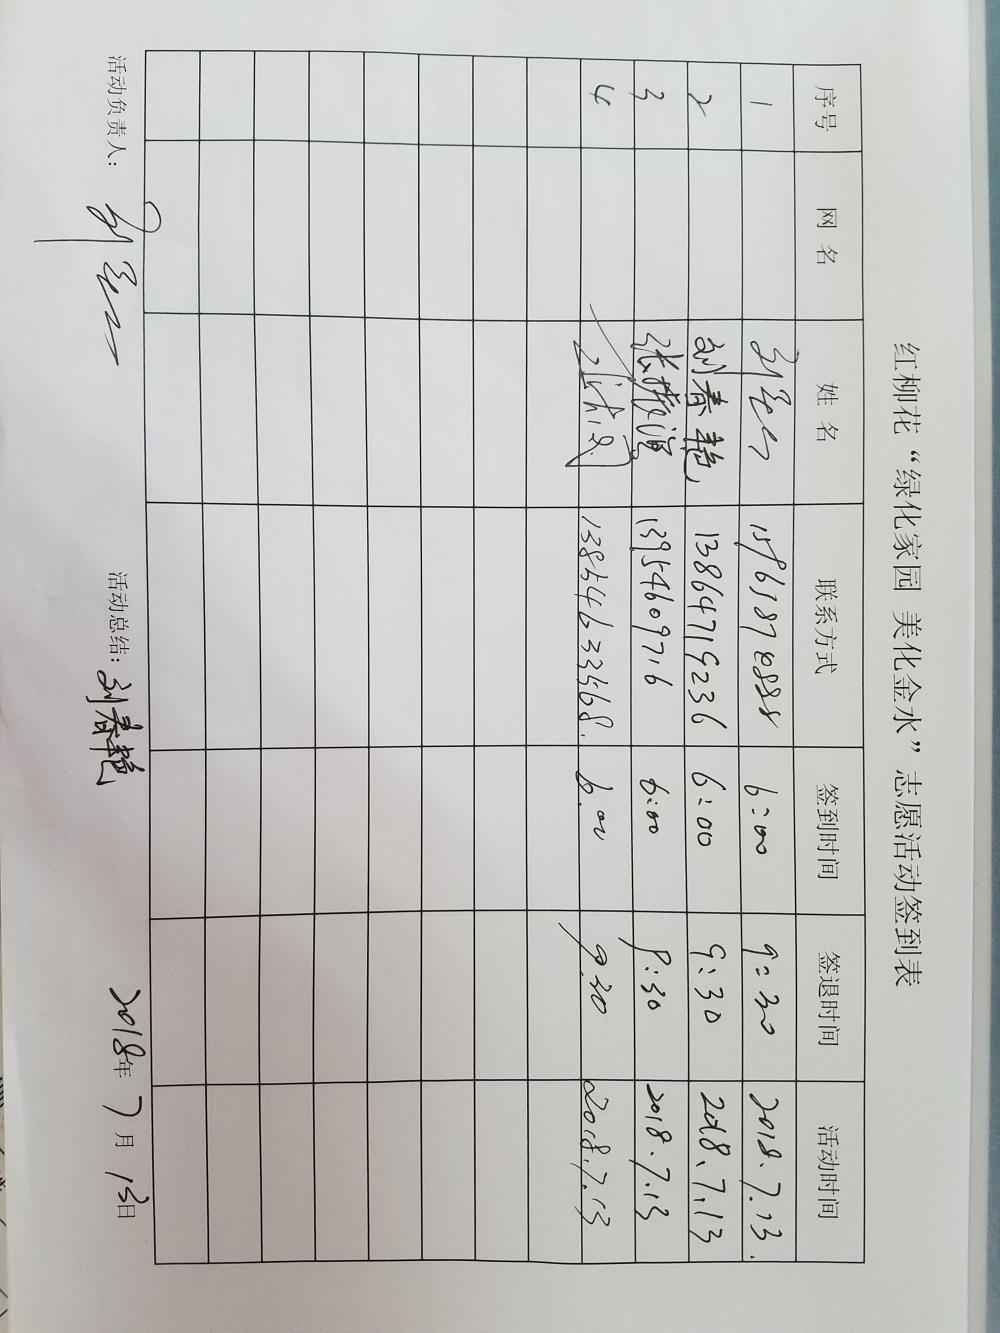 红柳花“绿化家园 美化金水”志愿活动签到表
序号 网名 姓名 联系方式 签到时间 签退时间 活动时间
1 6:00 9:30 2018.7.13.
2 刘春艳 13864719236 6:00 9:30 2018.7.13
3 13954609716 6:00 9:30 2018.7.13
4 13854633568. 6.00 9.30 2018.7.13
活动负责人: 活动总结: 刘春艳 2018年7月13日